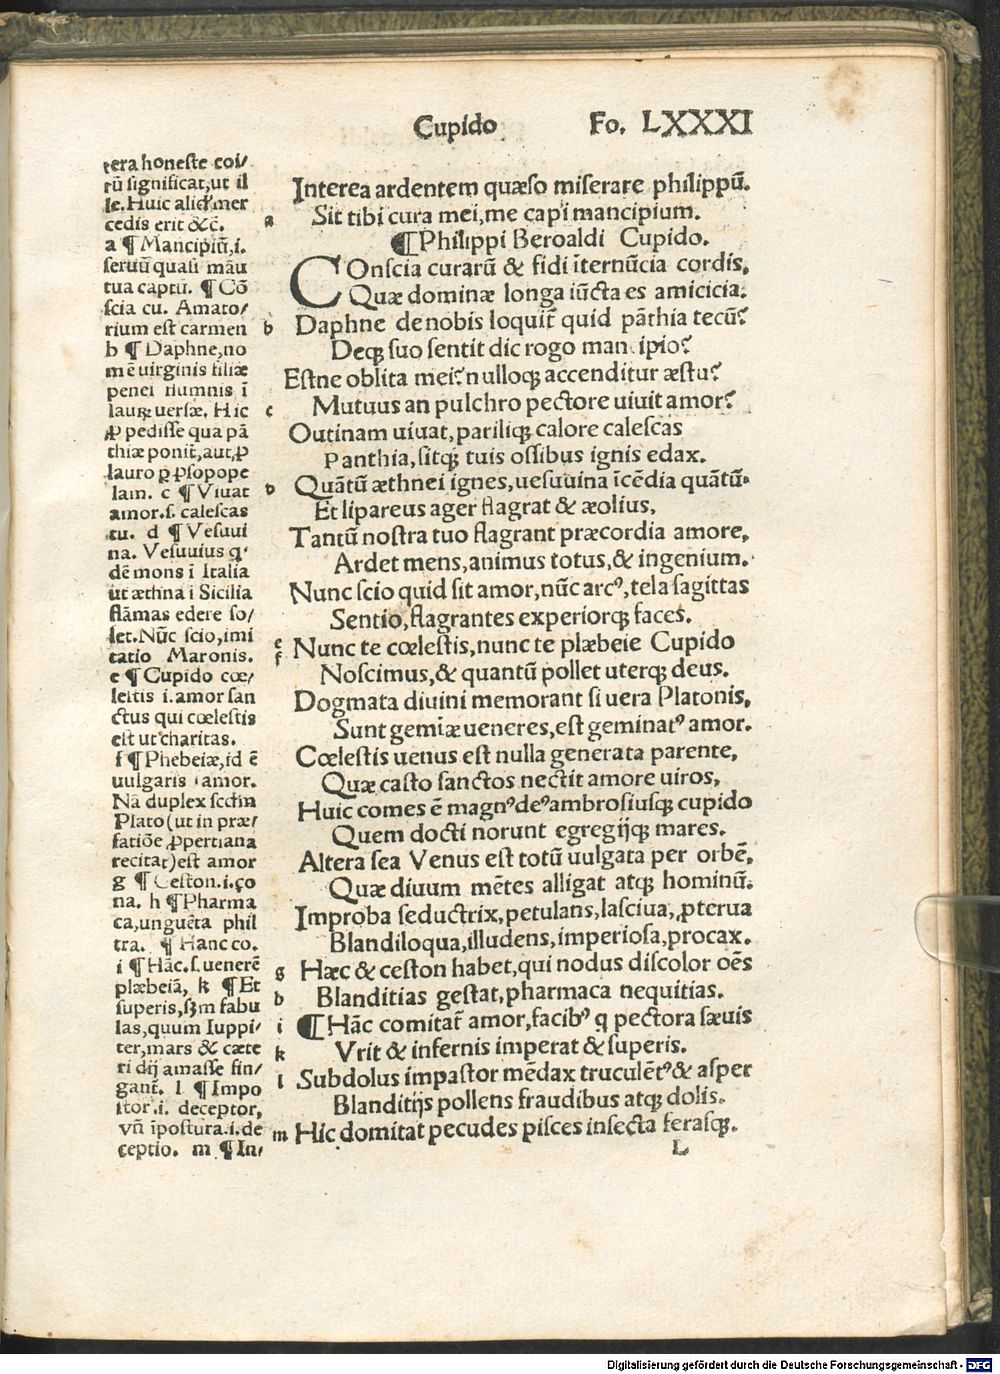 Cupido Fo. LXXXI
tera honeste coi/
tū significat, ut il
le. Huic aliqd mer
cedis erit &c̄.
a ¶ Mancipiū, i.
seruū quasi māu
tua captū. ¶ Cō
scia cu. Amato/
rium est carmen
b ¶ Daphne, no
mē uirginis filiæ
penei flumnis ī
lauꝝ uersæ. Hic
ꝓ pedisse qua pā
thiæ ponit̄, aut, ꝓ
lauro ꝑ ꝓsopope
iam. c ¶ Viuat
amor. s. calescas
tu. d ¶ Vesuui
na. Vesuuius q
dē mons ī Italia
ut æthna ī Sicilia
flāmas edere so/
let. Nūc scio, imi
tatio Maronis.
e ¶ Cupido cœ/
lestis i. amor san
ctus qui cœlestis
est ut charitas.
f ¶ Phebeiæ, id ē
uulgaris amor.
Nā duplex scdm
Plato (ut in præ/
fatiōe ꝓpertiana
recitat) est amor
g ¶ Ceston. i. ço
na. h ¶ Pharma
ca, unguēta phil
tra. ¶ Hanc co.
i ¶ Hāc. s. uenerē
plæbeiā, k ¶ Et
superis, sꝫm fabu
las, quum Iuppi/
ter, mars & cæte
ri dij amasse fin/
gant̄. l ¶ Impo
stor. i. deceptor,
vn̄ īpostura. i. de
ceptio. m ¶ In/
Interea ardentem quæso miserare philippū.
a Sit tibi cura mei, me capi mancipium.
¶ Philippi Beroaldi Cupido.
COnscia curarū & fidi īternūcia cordis,
Quæ dominæ longa iūcta es amicicia.
b Daphne de nobis loquit̄ quid pāthia tecū?
Deqꝫ suo sentit dic rogo mancipio?
Estne oblita mei? nulloqꝫ accenditur æstu?
c Mutuus an pulchro pectore uiuit amor?
Outinam uiuat, pariliqꝫ calore calescas
Panthia, sitqꝫ tuis ossibus ignis edax.
d Quātū æthnei ignes, uesuuina īcēdia quātū
Et lipareus ager flagrat & æolius,
Tantū nostra tuo flagrant præcordia amore,
Ardet mens, animus totus, & ingenium.
Nunc scio quid sit amor, nūc arcꝰ, tela sagittas
Sentio, flagrantes experiorqꝫ faces.
e Nunc te cœlestis, nunc te plæbeie Cupido
f Noscimus, & quantū pollet uterqꝫ deus.
Dogmata diuini memorant si uera Platonis,
Sunt gemīæ ueneres, est geminatꝰ amor.
Cœlestis uenus est nulla generata parente,
Quæ casto sanctos nectit amore uiros,
Huic comes ē magnꝰ deꝰ ambrosiusqꝫ cupido
Quem docti norunt egregijqꝫ mares.
Altera sea Venus est totū uulgata per orbē,
Quæ diuum mētes alligat atqꝫ hominū.
Improba seductrix, petulans, lasciua, ꝓterua
Blandiloqua, illudens, imperiosa, procax.
g Hæc & ceston habet, qui nodus discolor oēs
h Blanditias gestat, pharmaca nequitias.
i ¶ Hāc comitat̄ amor, facibꝰ q pectora sæuis
k Vrit & infernis imperat & superis.
l Subdolus impastor mēdax truculētꝰ & asper
Blanditijs pollens fraudibus atqꝫ dolis.
m Hic domitat pecudes pisces insecta ferasqꝫ.
L
Digitalisierung gefördert durch die Deutsche Forschungsgemeinschaft - DFG